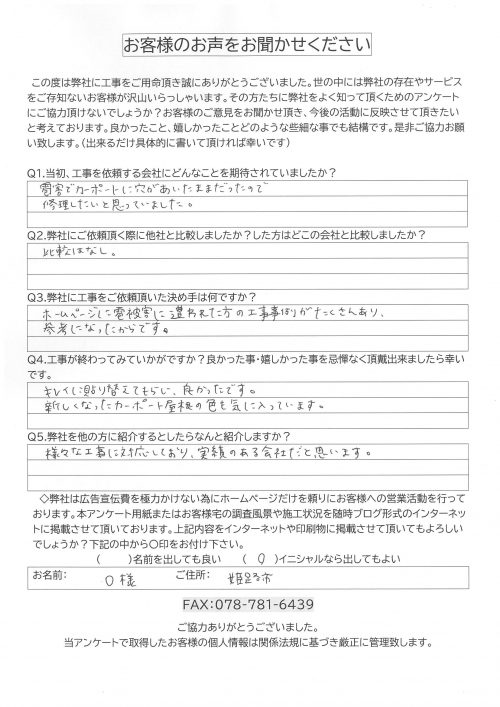 お客様のお声をお聞かせください
この度は弊社に工事をご用命頂き誠にありがとうございました。世の中には弊社の存在やサービス
をご存知ないお客様が沢山いらっしゃいます。その方たちに弊社をよく知って頂くためのアンケート
にご協力頂けないでしょうか？お客様のご意見をお聞かせ頂き、今後の活動に反映させて頂きたい
と考えております。良かったこと、嬉しかったことどのような些細な事でも結構です。是非ご協力お願
い致します。（出来るだけ具体的に書いて頂ければ幸いです）
Q1.当初、工事を依頼する会社にどんなことを期待されていましたか？
雹害でカーポートに穴があいたままだったので
修理したいと思っていました。
Q2.弊社にご依頼頂く際に他社と比較しましたか？した方はどこの会社と比較しましたか？
比較はなし。
Q3.弊社に工事をご依頼頂いた決め手は何ですか？
ホームページに雹被害に遭われた方の工事事例がたくさんあり、
参考になったからです。
Q4.工事が終わってみていかがですか？良かった事・嬉しかった事を忌憚なく頂戴出来ましたら幸い
です。
キレイに貼り替えてもらい、良かったです。
新しくなったカーポート屋根の色も気に入っています。
Q5.弊社を他の方に紹介するとしたらなんと紹介しますか？
様々な工事に対応しており、実績のある会社だと思います。
◇弊社は広告宣伝費を極力かけない為にホームページだけを頼りにお客様への営業活動を行って
おります。本アンケート用紙またはお客様宅の調査風景や施工状況を随時ブログ形式のインターネッ
トに掲載させて頂いております。上記内容をインターネットや印刷物に掲載させて頂いてもよろしい
でしょうか？下記の中から〇印をお付け下さい。
（　　）名前を出しても良い　（ 〇 ）イニシャルなら出してもよい
お名前：　O様　ご住所：　姫路市
FAX：078-781-6439
ご協力ありがとうございました。
当アンケートで取得したお客様の個人情報は関係法規に基づき厳正に管理致します。